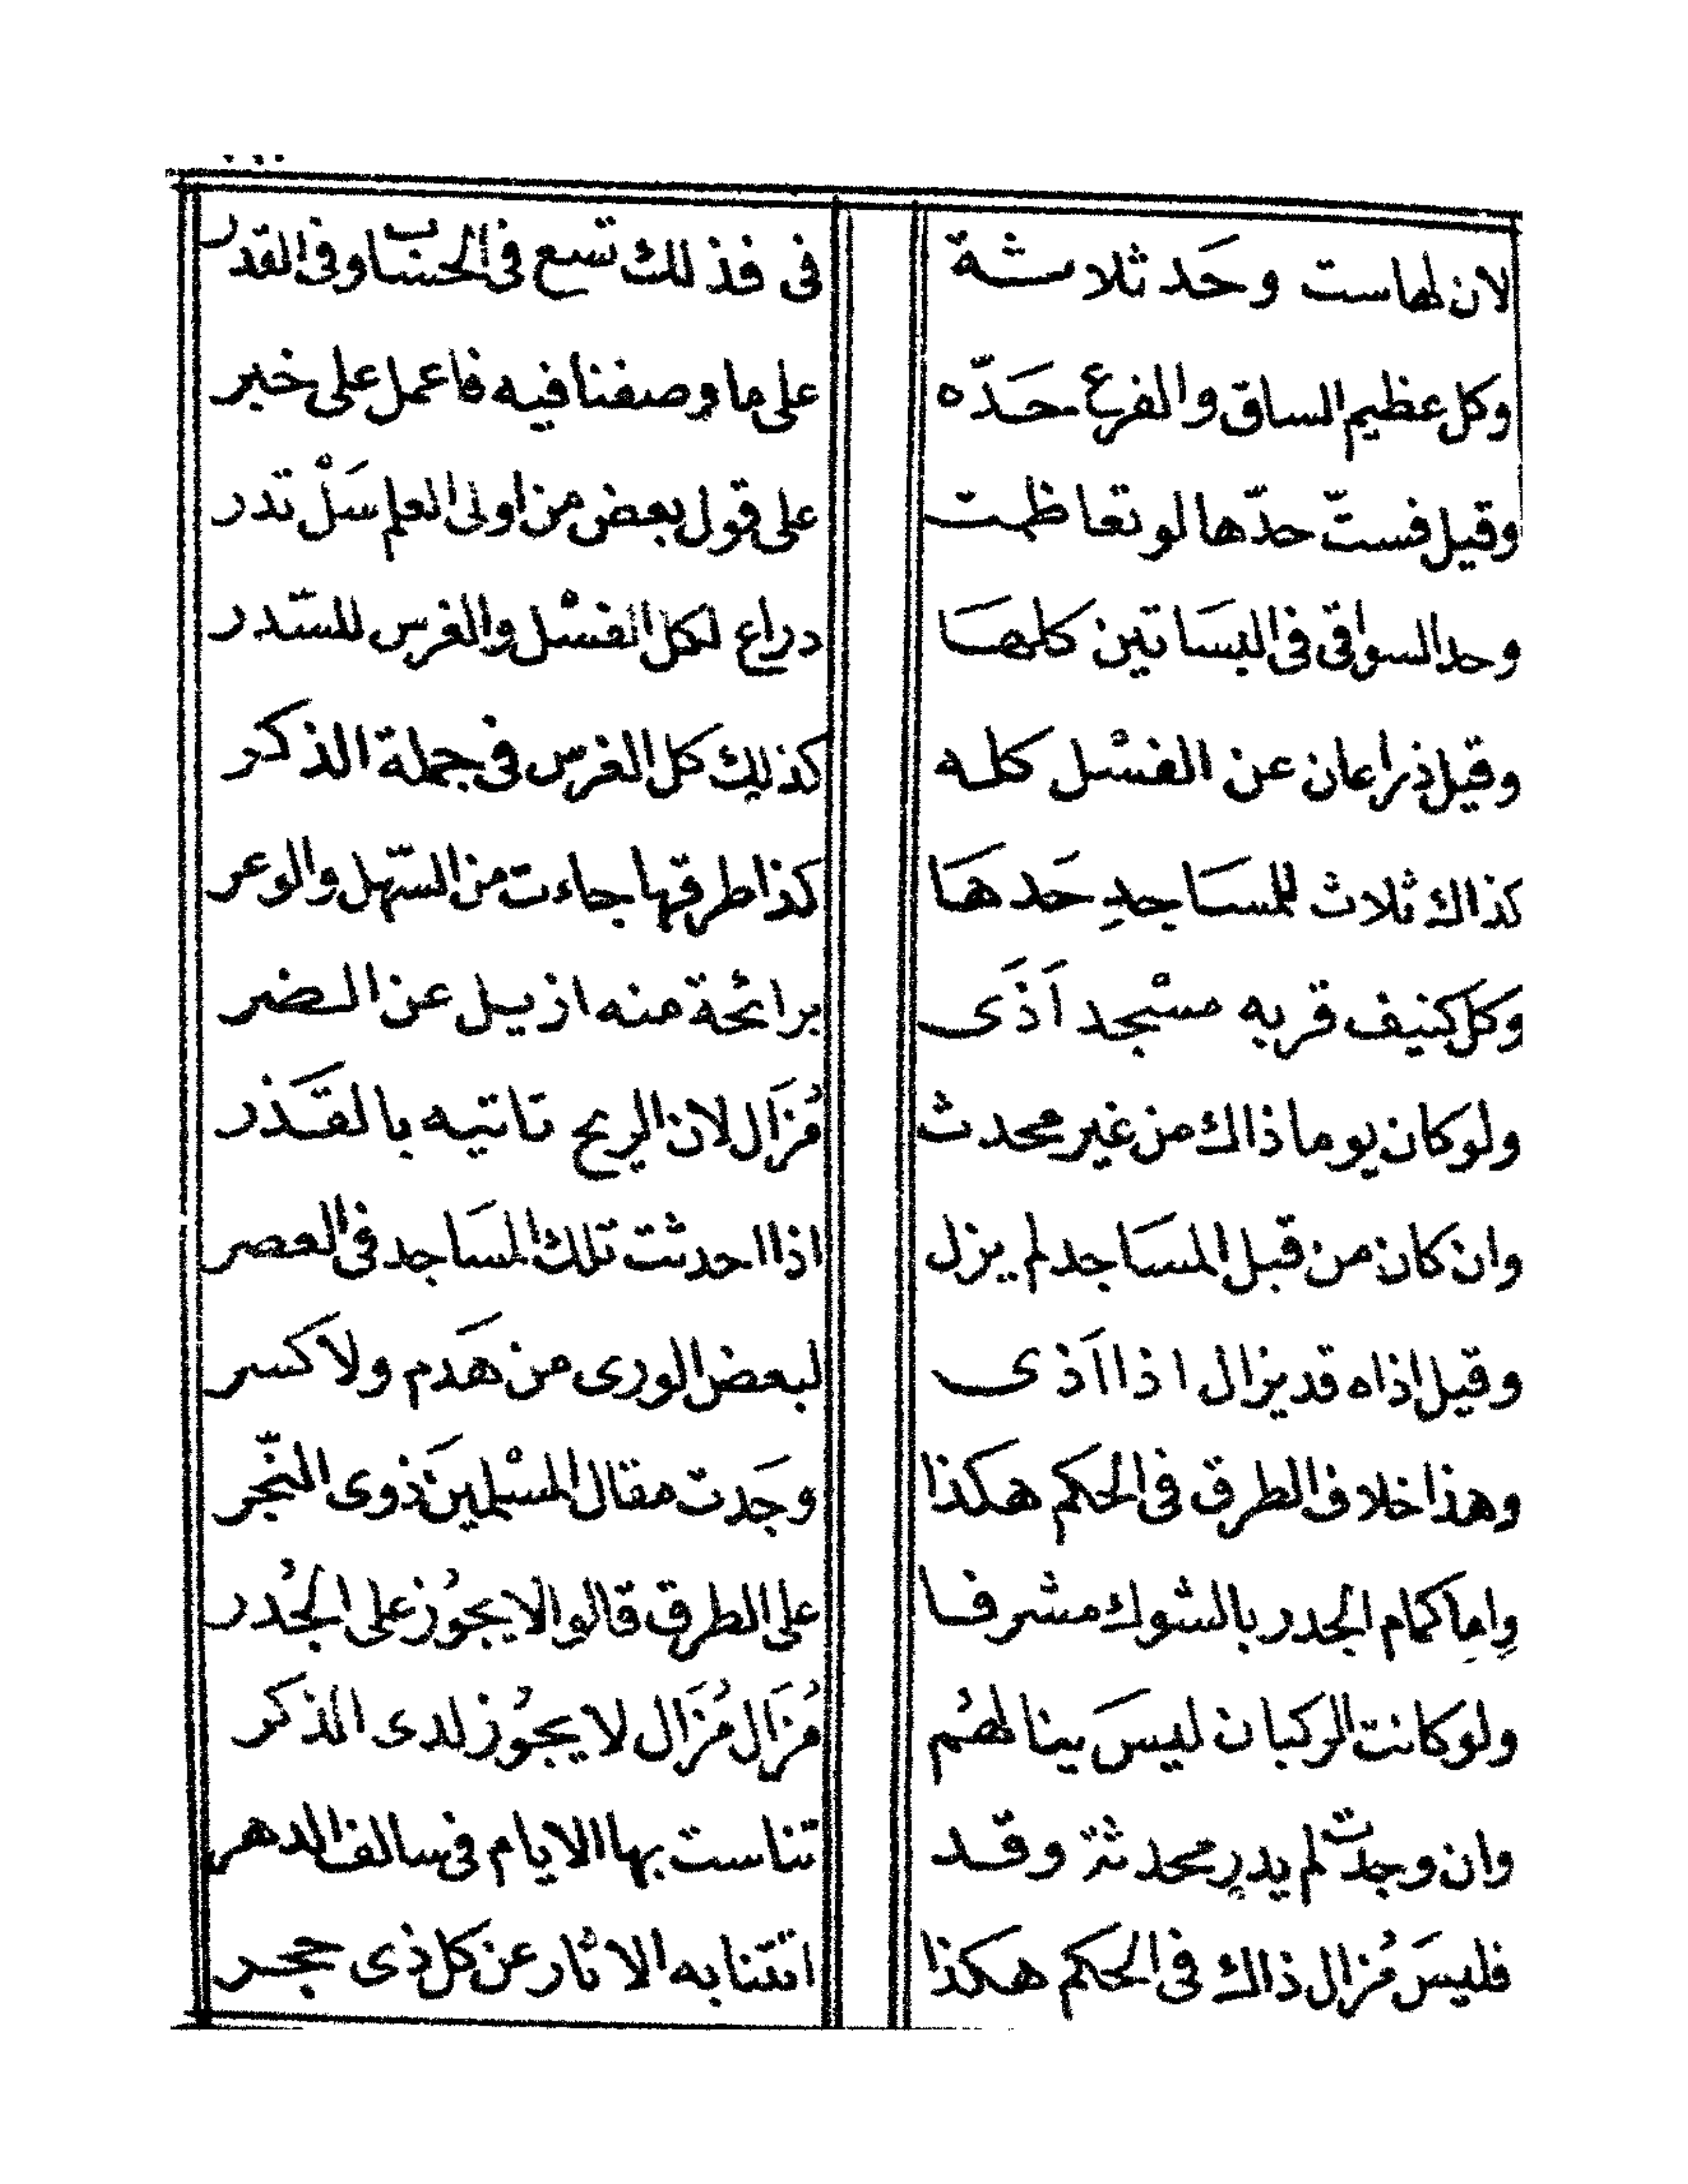 لان لها ست وحَد ثلاثة في فذلك تسع في الحساب وفي القدر
وكل عظيم الساق والفرع حَدّه على ما وصفنا فيه فاعمل على خبر
وقيل فستّ حدّها لو تعاظمت على قول بعض من اولى العلم سَلْ تدر
وحد السواقي في البسَاتين كلهَا دراع لكل الفسْل والغرس للسّدر
وقيل ذراعان عن الفسْل كله كذلك كل الغرس في جملة الذكر
كذاك ثلاث للمسَاجدِ حَدهَا كذا طرقها جاءت من السّهل والوعر
وكل كنيف قربه مسْجد اَذَى برائحة منه ازيل عن الضر
ولو كان يوما ذاك من غير محدث مُزَال لان الريح تاتيه بالقَذر
وان كان من قبل المسَاجد لم يزل اذا احدثت تلك المسَاجد في العصر
وقيل اذاه قد يزال اذا اَذى لبعض الورى من هَدم ولا كسر
وهذا خلاف الطرق في الحكم هكذا وجَدت مقال المسْلمينَ ذوى النّجر
واما كمام الجدر بالشوك مشرفا على الطرق قالوا لا يجُوز على الجُدر
ولو كانت الركبان ليسَ ينالهُم مُزَال مُزَال لا يجُوز لدى الذكر
وان وجدتّ لم يدرِ محدثة وقد تناست بها الايام في سالف الدهر
فليسَ مُزال ذاك في الحكم هكذا اتتنا به الاثار عن كل ذى حجر